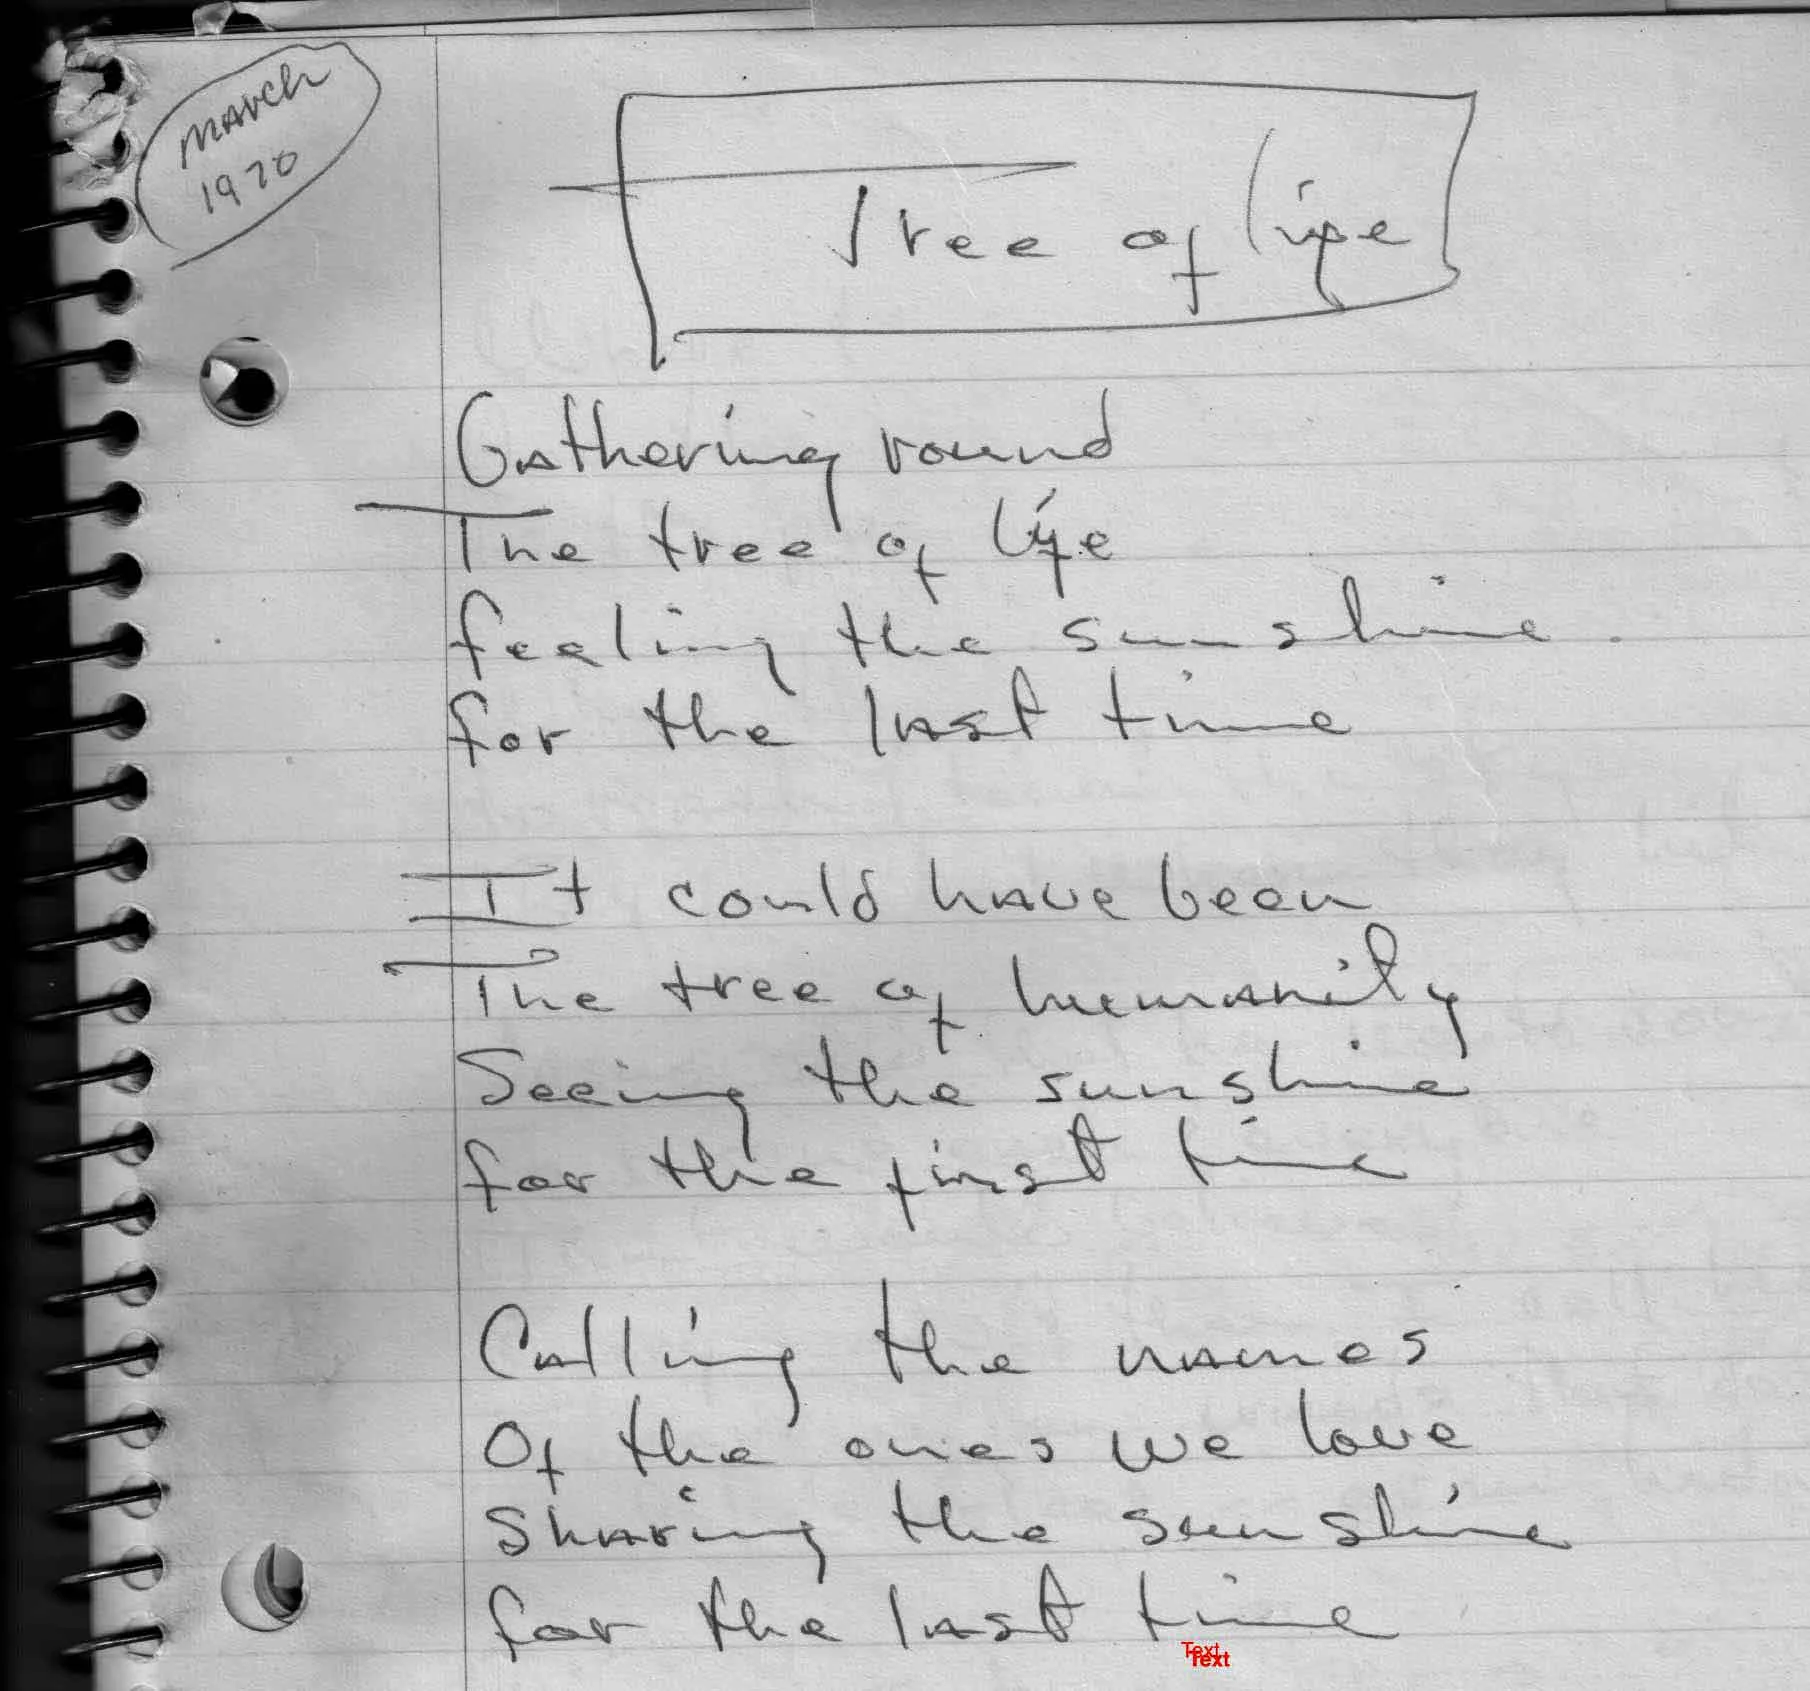 March
1970
Tree of life
Gathering round
The tree of life
feeling the sunshine
for the last time
It could have been
The tree of humanity
Seeing the sunshine
for the first time
Calling the names
Of the ones we love
Sharing the sunshine
for the last time
Text
Text